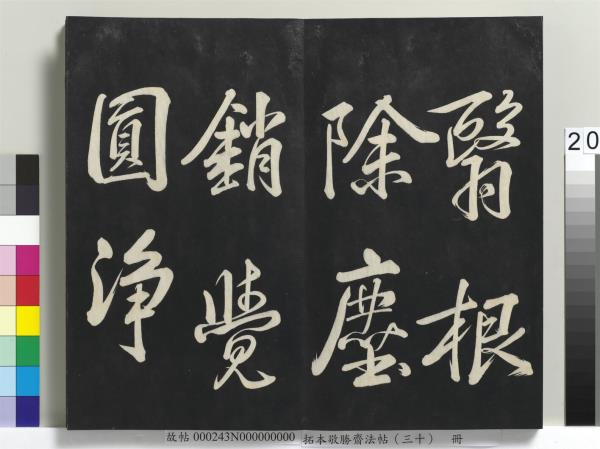 翳根
除塵
銷覺
圓淨
故帖 000243N000000000 拓本敬勝齋法帖（三十） 冊
20